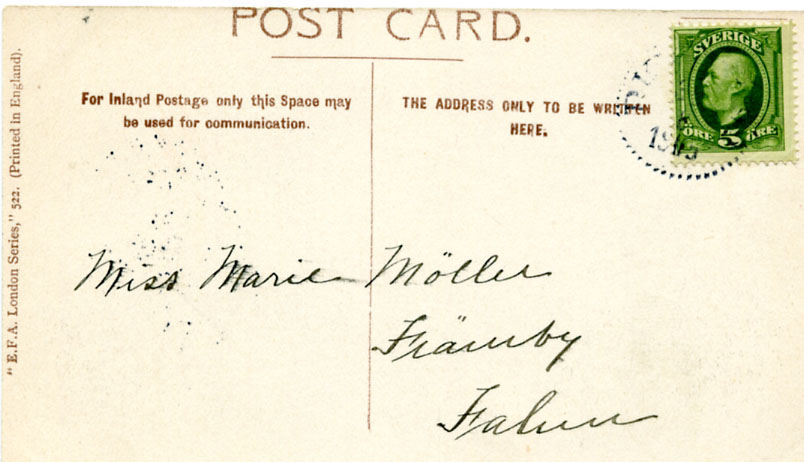 POST CARD.
For Inland Postage only this Space may
be used for communication.
THE ADDRESS ONLY TO BE WRITTEN
HERE.
SVERIGE
ÖRE 5 ÖRE
Miss Marie Möller
Främby
Falun
"E.F.A. London Series," 522. (Printed in England).